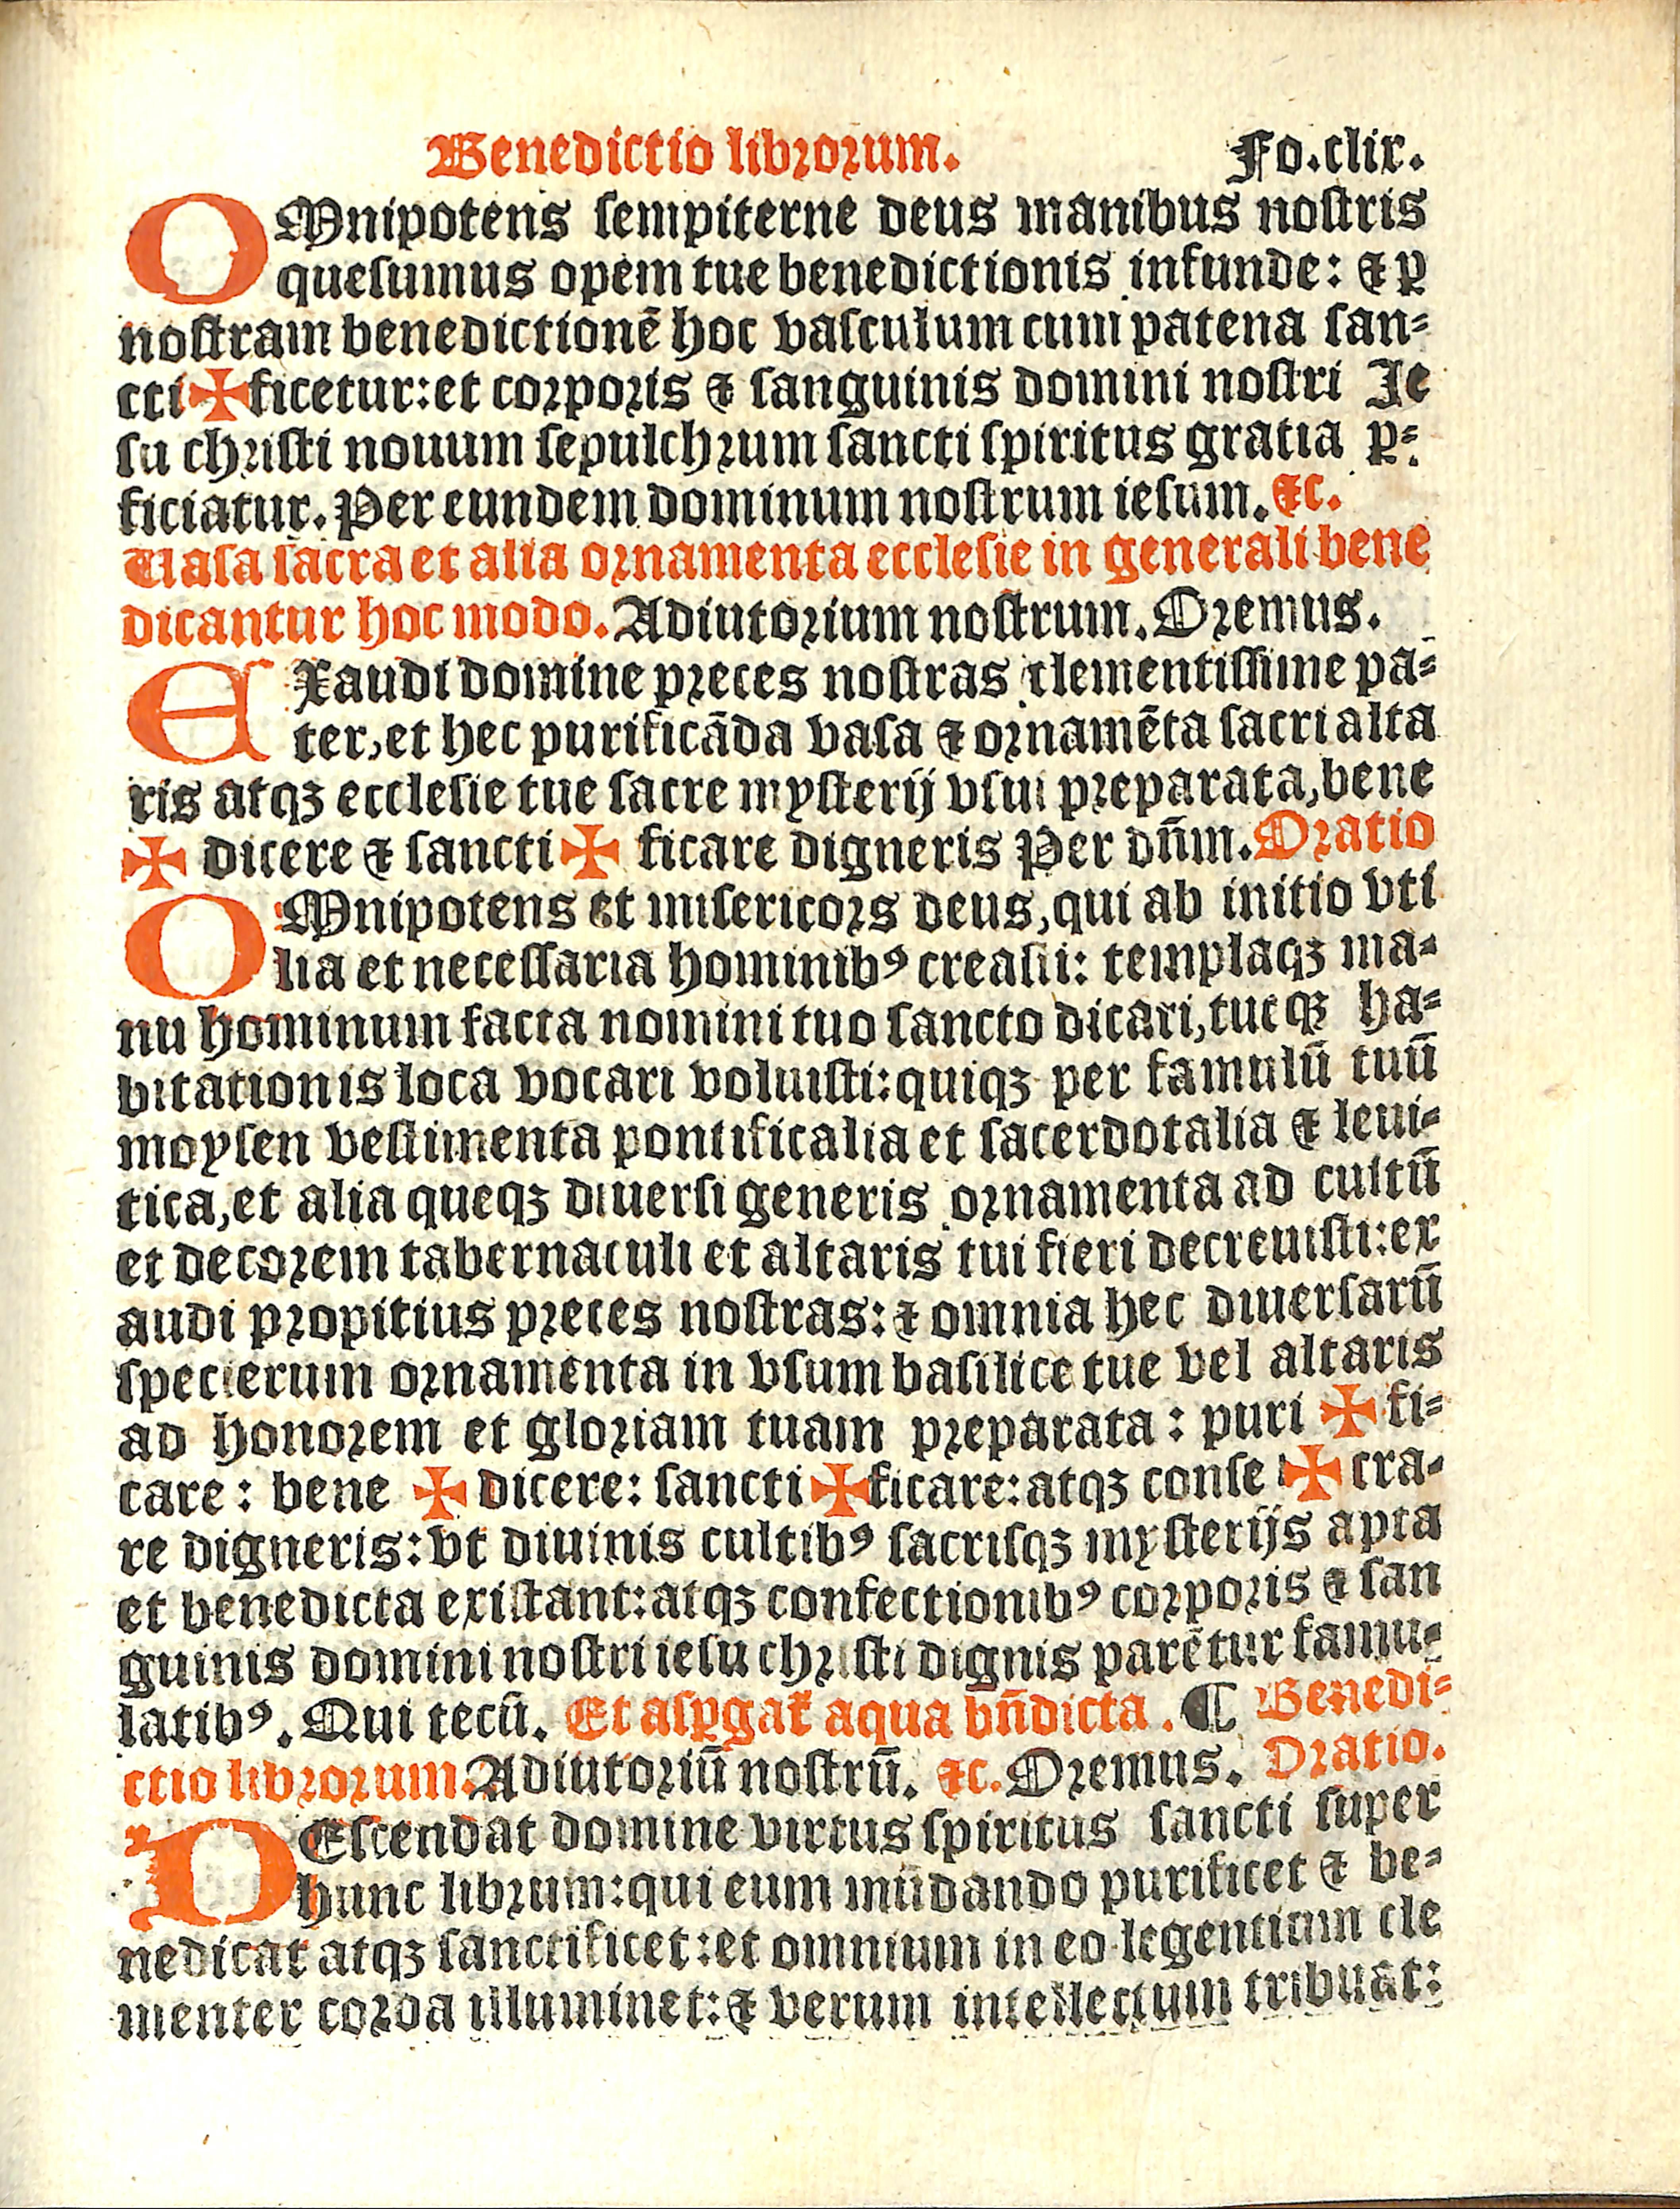 Benedictio librorum. Fo.clix.
OMnipotens sempiterne deus manibus nostris
quesumus opem tue benedictionis infunde: ⁊ ꝑ
nostram benedictionē hoc vasculum cum patena san⸗
cti✠ficetur:et corporis ⁊ sanguinis domini nostri Ie
su christi nouum sepulchrum sancti spiritus gratia ꝑ⸗
ficiatur. Per eundem dominum nostrum iesum.⁊c.
Uasa sacra et alia ornamenta ecclesie in generali bene
dicantur hoc modo. Adiutorium nostrum. Oremus.
EXaudi domine preces nostras clementissime pa⸗
ter, et hec purificāda vasa ⁊ ornamēta sacri alta
ris atqꝫ ecclesie tue sacre mysterij vsui preparata, bene
✠ dicere ⁊ sancti✠ ficare digneris Per dn̄m. Oratio
OMnipotens et misericors deus, qui ab initio vti
lia et necessaria hominibꝰ creasti: templaqꝫ ma⸗
nu hominum facta nomini tuo sancto dicari, tueqꝫ ha⸗
bitationis loca vocari voluisti: quiqꝫ per famulū tuū
moysen vestimenta pontificalia et sacerdotalia ⁊ leui⸗
tica, et alia queqꝫ diuersi generis ornamenta ad cultū
et decorem tabernaculi et altaris tui fieri decreuisti: ex
audi propitius preces nostras: ⁊ omnia hec diuersarū
specierum ornamenta in vsum basilice tue vel altaris
ad honorem et gloriam tuam preparata: puri ✠ fi⸗
care: bene ✠ dicere: sancti✠ficare: atqꝫ conse ✠ cra⸗
re digneris: vt diuinis cultibꝰ sacrisqꝫ mysterijs apta
et benedicta existant: atqꝫ confectionibꝰ corporis ⁊ san
guinis domini nostri iesu christi dignis parētur famu⸗
latibꝰ. Qui tecū. Et asꝑgat̄ aqua bn̄dicta. ¶ Benedi⸗
ctio librorum. Adiutoriū nostrū. ⁊c. Oremus. Oratio.
DEscendat domine virtus spiritus sancti super
hunc librum: qui eum mūdando purificet ⁊ be⸗
nedicat atqꝫ sanctificet: et omnium in eo legentium cle
menter corda illuminet: ⁊ verum intellectum tribuat: